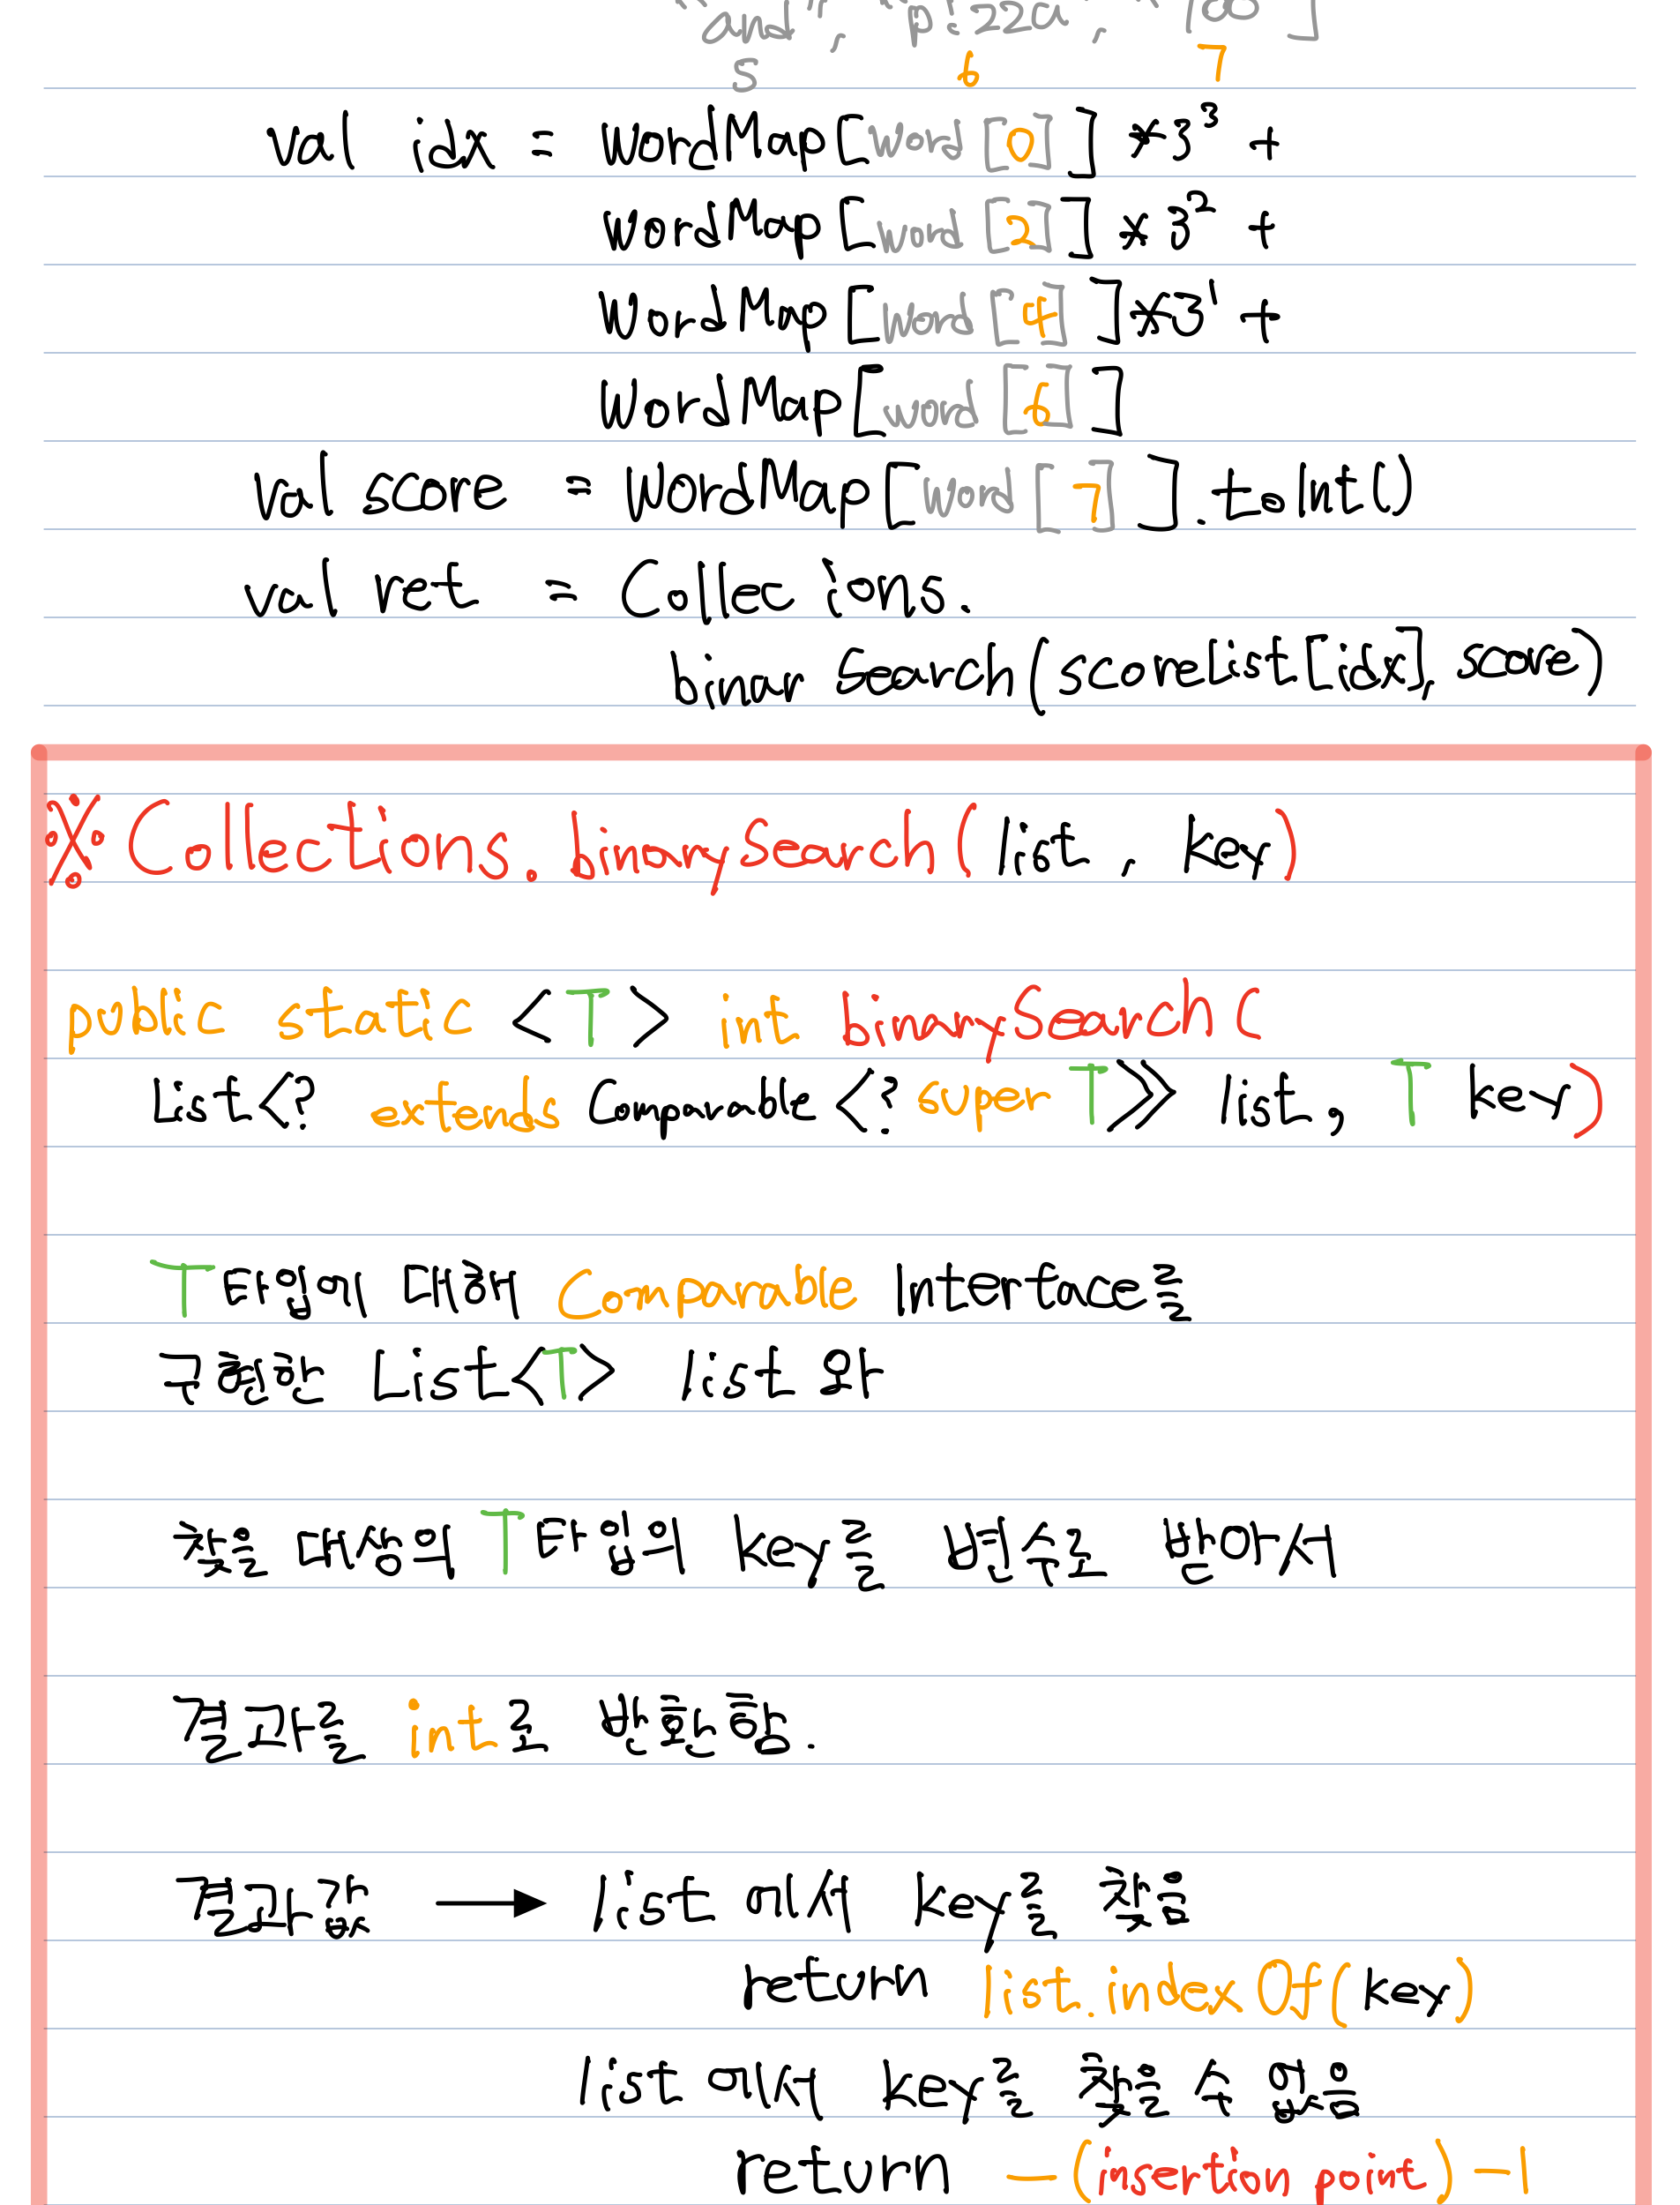 "and", "pizza", "100"]
5 6 7
val idx = wordMap[word[0]] *3³ +
wordMap[word[2]] *3² +
wordMap[word[4]]*3¹ +
wordMap[word[6]]
val score = WordMap[word[7]].toInt()
val ret = Collec ions.
binar Search(scorelist[idx], score)
※ Collections.binarySearch(list, key)
public static <T> int binarySearch(
List<? extends Comparable<? super T>> list, T key)
T타입에 대해 Comparable Interface를
구현한 List<T> list 와
찾을 대상의 T타입의 key를 변수로 받아서
결과를 int로 반환함.
결과값 → list 에서 key를 찾음
return list.indexOf(key)
list 에서 key를 찾을 수 없음
return -(insertion point)-1